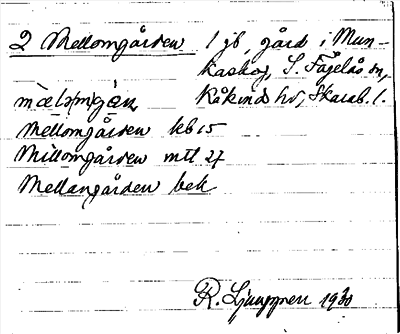 2 Mellomgården 1 jb, gård i Mun-
kaskog, S. Fågelås sn,
Kåkinds hd, Skarab. l.
Mellomgården kb 15
Millomgården mtl 27
Mellangården bek
R. Ljunggren 1930